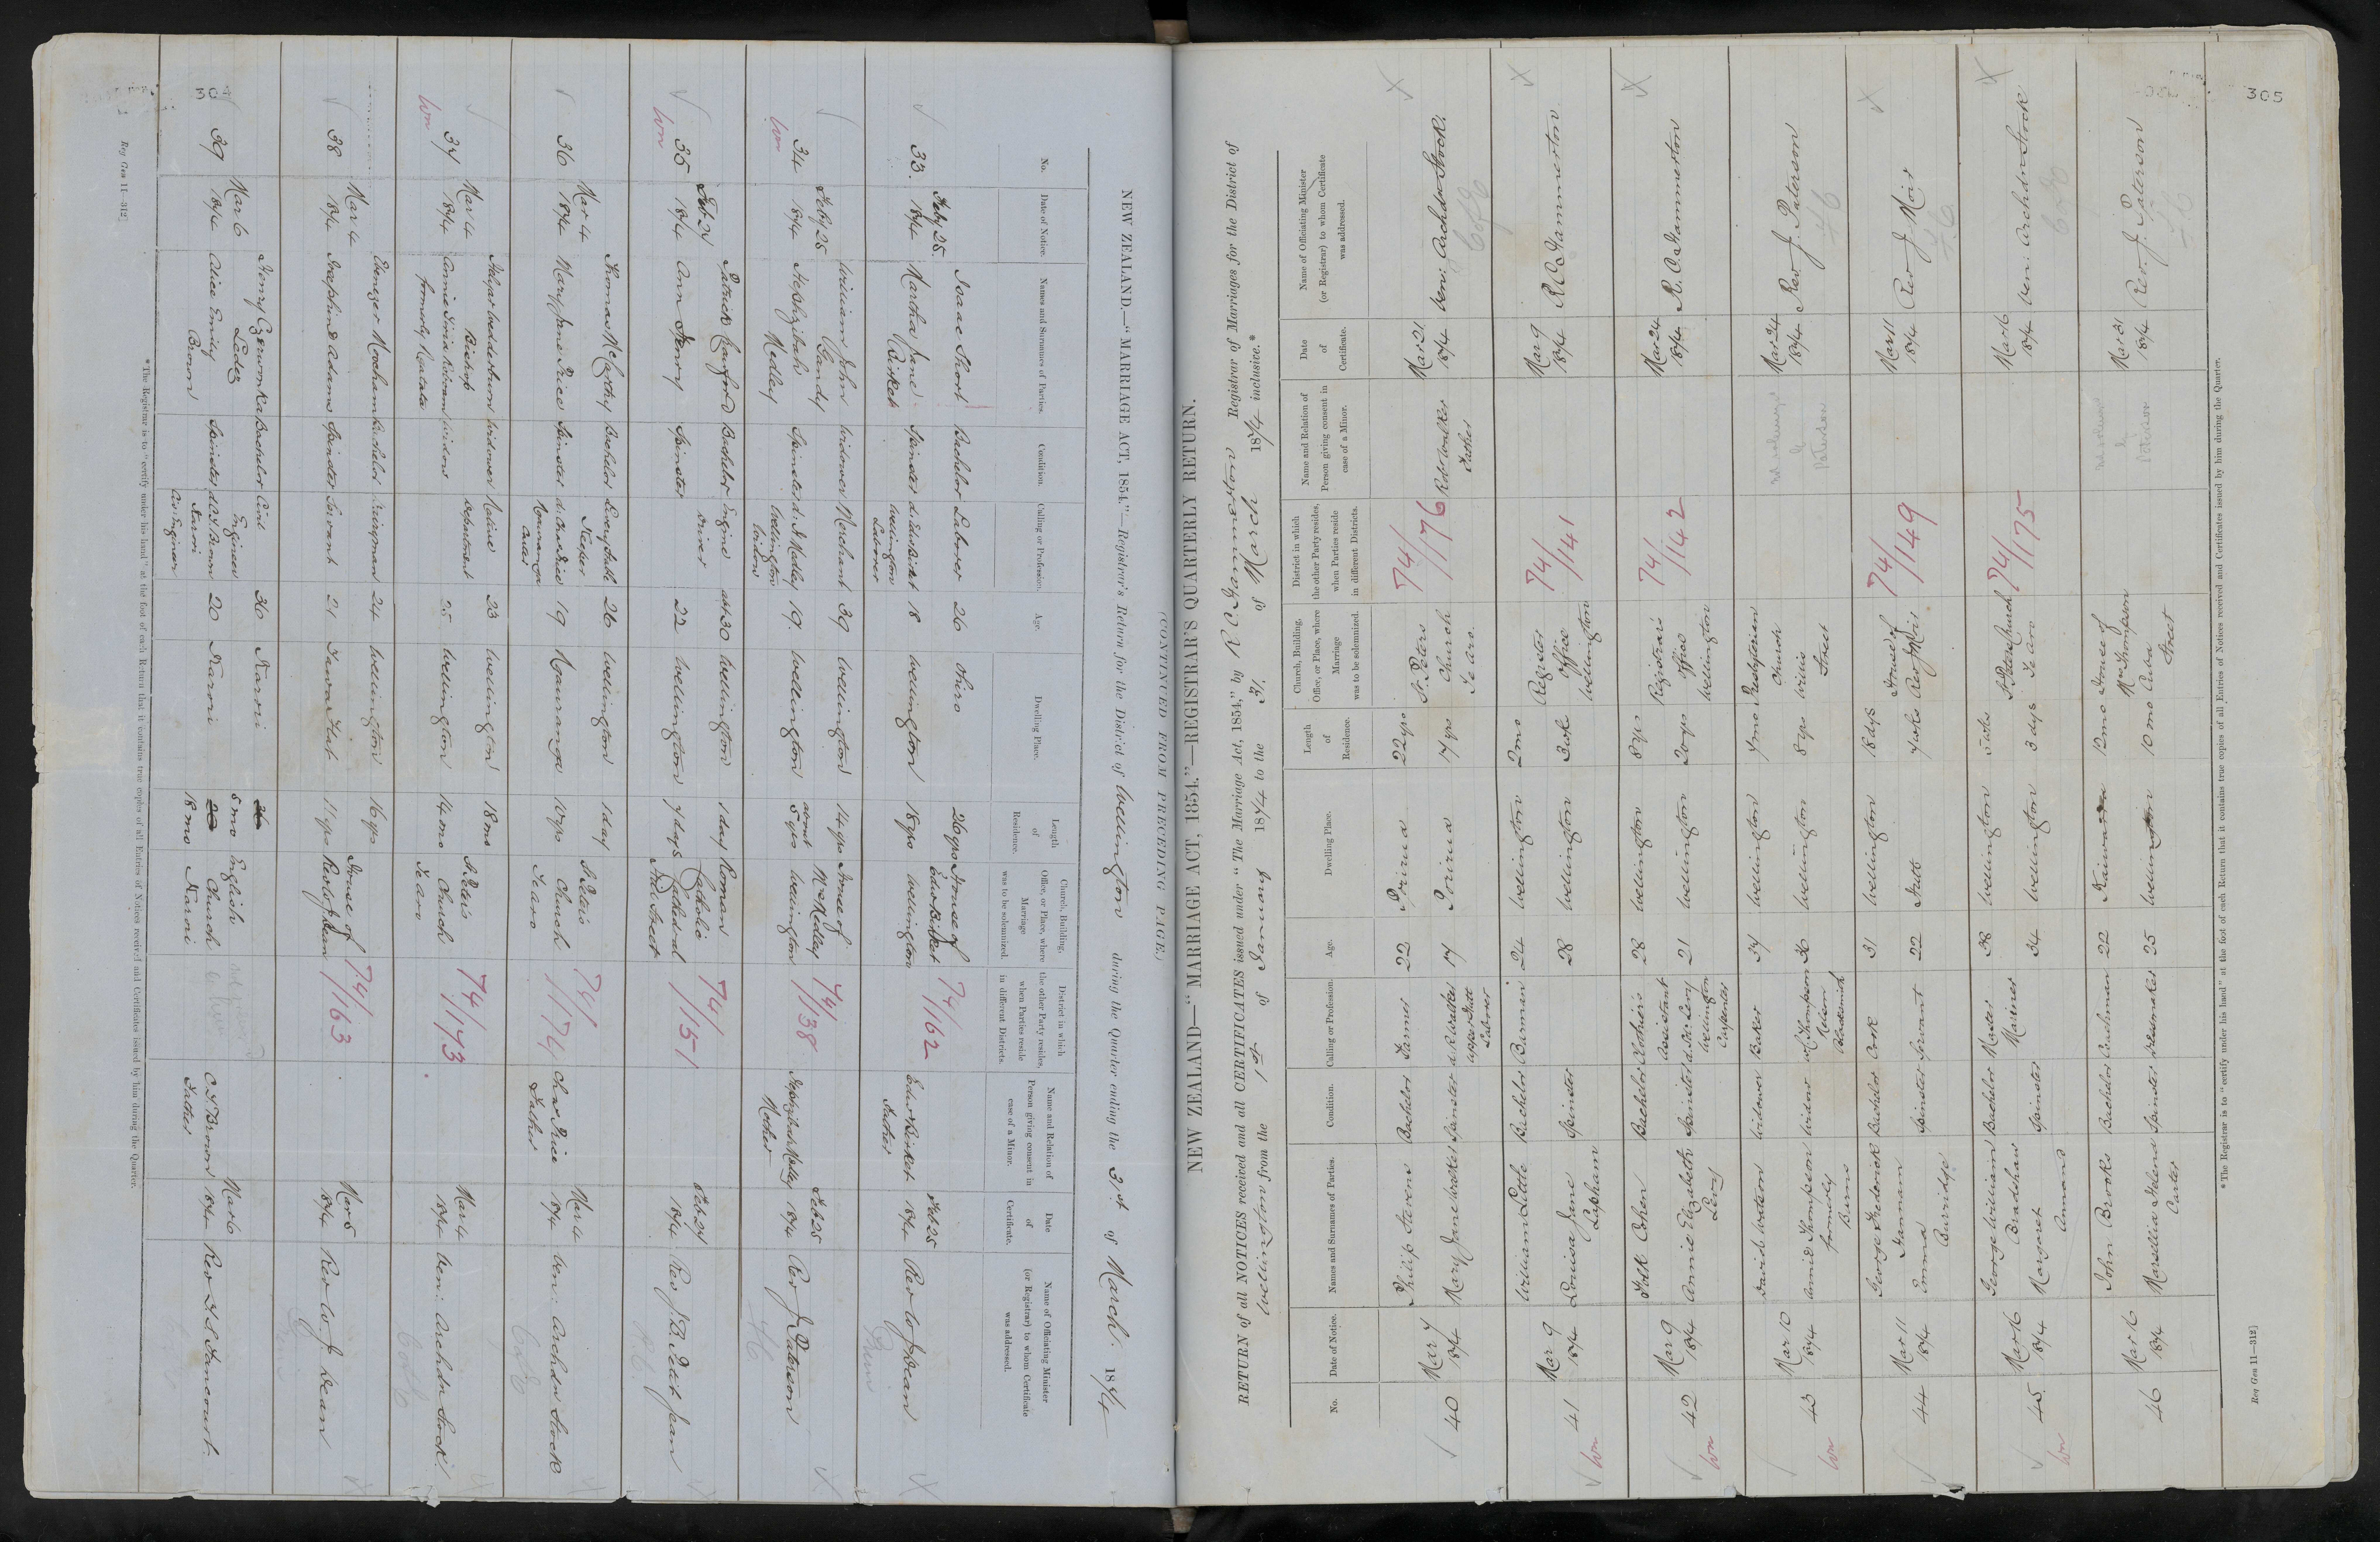 304
NEW ZEALAND.—"MARRIAGE ACT, 1854."—Registrar's Return for the District of Wellington during the Quarter ending the 31st of March 1874
No.
Date of Notice.
Names and Surnames of Parties.
Condition.
Calling or Profession.
Age.
Dwelling Place.
Length of Residence.
Church, Building, Office, or Place, where Marriage was to be solemnized.
District in which the other Party resides, when Parties reside in different Districts.
Name and Relation of Person giving consent in case of a Minor.
Date of Certificate.
Name of Officiating Minister (or Registrar) to whom Certificate was addressed.
33. Feby 25. 1874
Isaac Short Bachelor Laborer 26 Ohiro 26 yrs
Martha Jane Birket Spinster d. Edw Birket Wellington Laborer 18 Wellington 18 yrs
House of Edw Birket Wellington
74/162
Edw Birket Father
Feb 25 1874
Rev W J Dean
34 Feby 25 1874
William John Gandy Widower Merchant 39 Wellington 14 yrs
Hephzibah Medley Spinster d. J Medley Wellington 19. Wellington about 5 yrs
House of Mr Medley Wellington
74/138
Hephzibah Medley Mother
Feb 25 1874
Rev J Paterson
35 Feb 27 1874
Patrick Bachelor Engine driver abt 30 Wellington 1 day
Ann Henry Spinster 22 Wellington 7 days
Roman Catholic Cathedral Hill Street
74/151
Feb 27 1874
Rev J. B. Petit Jean
36 Mar 4 1874
Thomas McCarthy Bachelor 26 Wellington 1 day
Mary Jane Price Spinster d. Chas Price 19 Kaiwaranga 10 yrs
St Peters Church Te Aro
74/174
Chas Price Father
Mar 4 1874
Ven: Archdn Stock
37 Mar 4 1874
Wedderburn Bishop Widower Native Department 23 Wellington 18 mo
Annie Widow formerly 25 Wellington 14 mo
St Peters Church Te Aro
74/173
Mar 4 1874
Ven: Archdn Stock
38 Mar 4 1874
Ebenezer Bachelor 24 Wellington 16 yrs
Josephine Adams Spinster Servant 21 Tawa Flat 11 yrs
House of Rev W J Dean
74/163
Mar 5 1874
Rev W. J. Dean
39 Mar 6 1874
Henry Bachelor Civil Engineer 36 Karori 5 mo
Alice Emily Brown Spinster Karori Civ: Engineer 20 Karori 18 mo
English Church Karori
C. J. Brown Father
Mar 6 1874
Rev
*The Registrar is to "certify under his hand" at the foot of each Return that it contains true copies of all Entries of Notices received and Certificates issued by him during the Quarter.
Reg Gen 11—312]
305
(CONTINUED FROM PRECEDING PAGE.)
NEW ZEALAND—"MARRIAGE ACT, 1854."—REGISTRAR'S QUARTERLY RETURN.
RETURN of all NOTICES received and all CERTIFICATES issued under "The Marriage Act, 1854," by R C Hammerton Registrar of Marriages for the District of
Wellington from the 1st of January 1874 to the 31. of March 1874 inclusive.*
No.
Date of Notice.
Names and Surnames of Parties.
Condition.
Calling or Profession.
Age.
Dwelling Place.
Length of Residence.
Church, Building, Office, or Place, where Marriage was to be solemnized.
District in which the other Party resides, when Parties reside in different Districts.
Name and Relation of Person giving consent in case of a Minor.
Date of Certificate.
Name of Officiating Minister (or Registrar) to whom Certificate was addressed.
40 Mar 7 1874
Philip Stevens Bachelor Farmer 22 Porirua 22 yrs
Mary Jane Walker Spinster d. R Walker Upper Hutt Laborer 17 Porirua 17 yrs
St. Peters Church Te Aro.
74/176
Robt Walker Father
Mar 21 1874
Ven: Archdn Stock.
C of E
41 Mar 9 1874
William Little Bachelor Barman 24 Wellington 2 mo
Louisa Jane Lapham Spinster 28 Wellington 3 wks
Register Office Wellington
74/141
Mar 9 1874
R C Hammerton
42 Mar 9 1874
Cohen Bachelor Clothiers Assistant 28 Wellington 8 yrs
Annie Elizabeth Levy Spinster Wellington Carpenter 21 Wellington 20 yrs
Registrars Office Wellington
74/142
Mar 24 1874
R. C. Hammerton
43 Mar 10 1874
David Watson Widower Baker 37 Wellington 7 mo
Annie Thompson formerly Burns Widow of Thompson Nelson 36 Wellington 8 yrs
Presbyterian Church Willis Street
Mar 24 1874
Rev J. Paterson
44 Mar 11 1874
George Frederick Hammam Bachelor Cook 31 Wellington 18 dys
Emma Burridge Spinster Servant 22 Hutt 7 wks
House of Rev J Moir
74/149
Mar 11 1874
Rev J Moir
45. Mar 16 1874
George William Bradshaw Bachelor Master Mariner 38 Wellington 5 wks
Margaret Amons Spinster 34 Wellington 3 dys
St Peters Church Te Aro
74/175
Mar 16 1874
Ven: Archdn Stock
C of E
46 Mar 16 1874
John Brooks Bachelor Coachman 22 Kaiwarra 12 mo
Marsellia Helena Carter Spinster Dressmaker 25 Wellington 10 mo
House of Mr Thompson Cuba Street
Mar 31 1874
Rev. J. Paterson
*The Registrar is to "certify under his hand" at the foot of each Return that it contains true copies of all Entries of Notices received and Certificates issued by him during the Quarter.
Reg Gen 11—312]